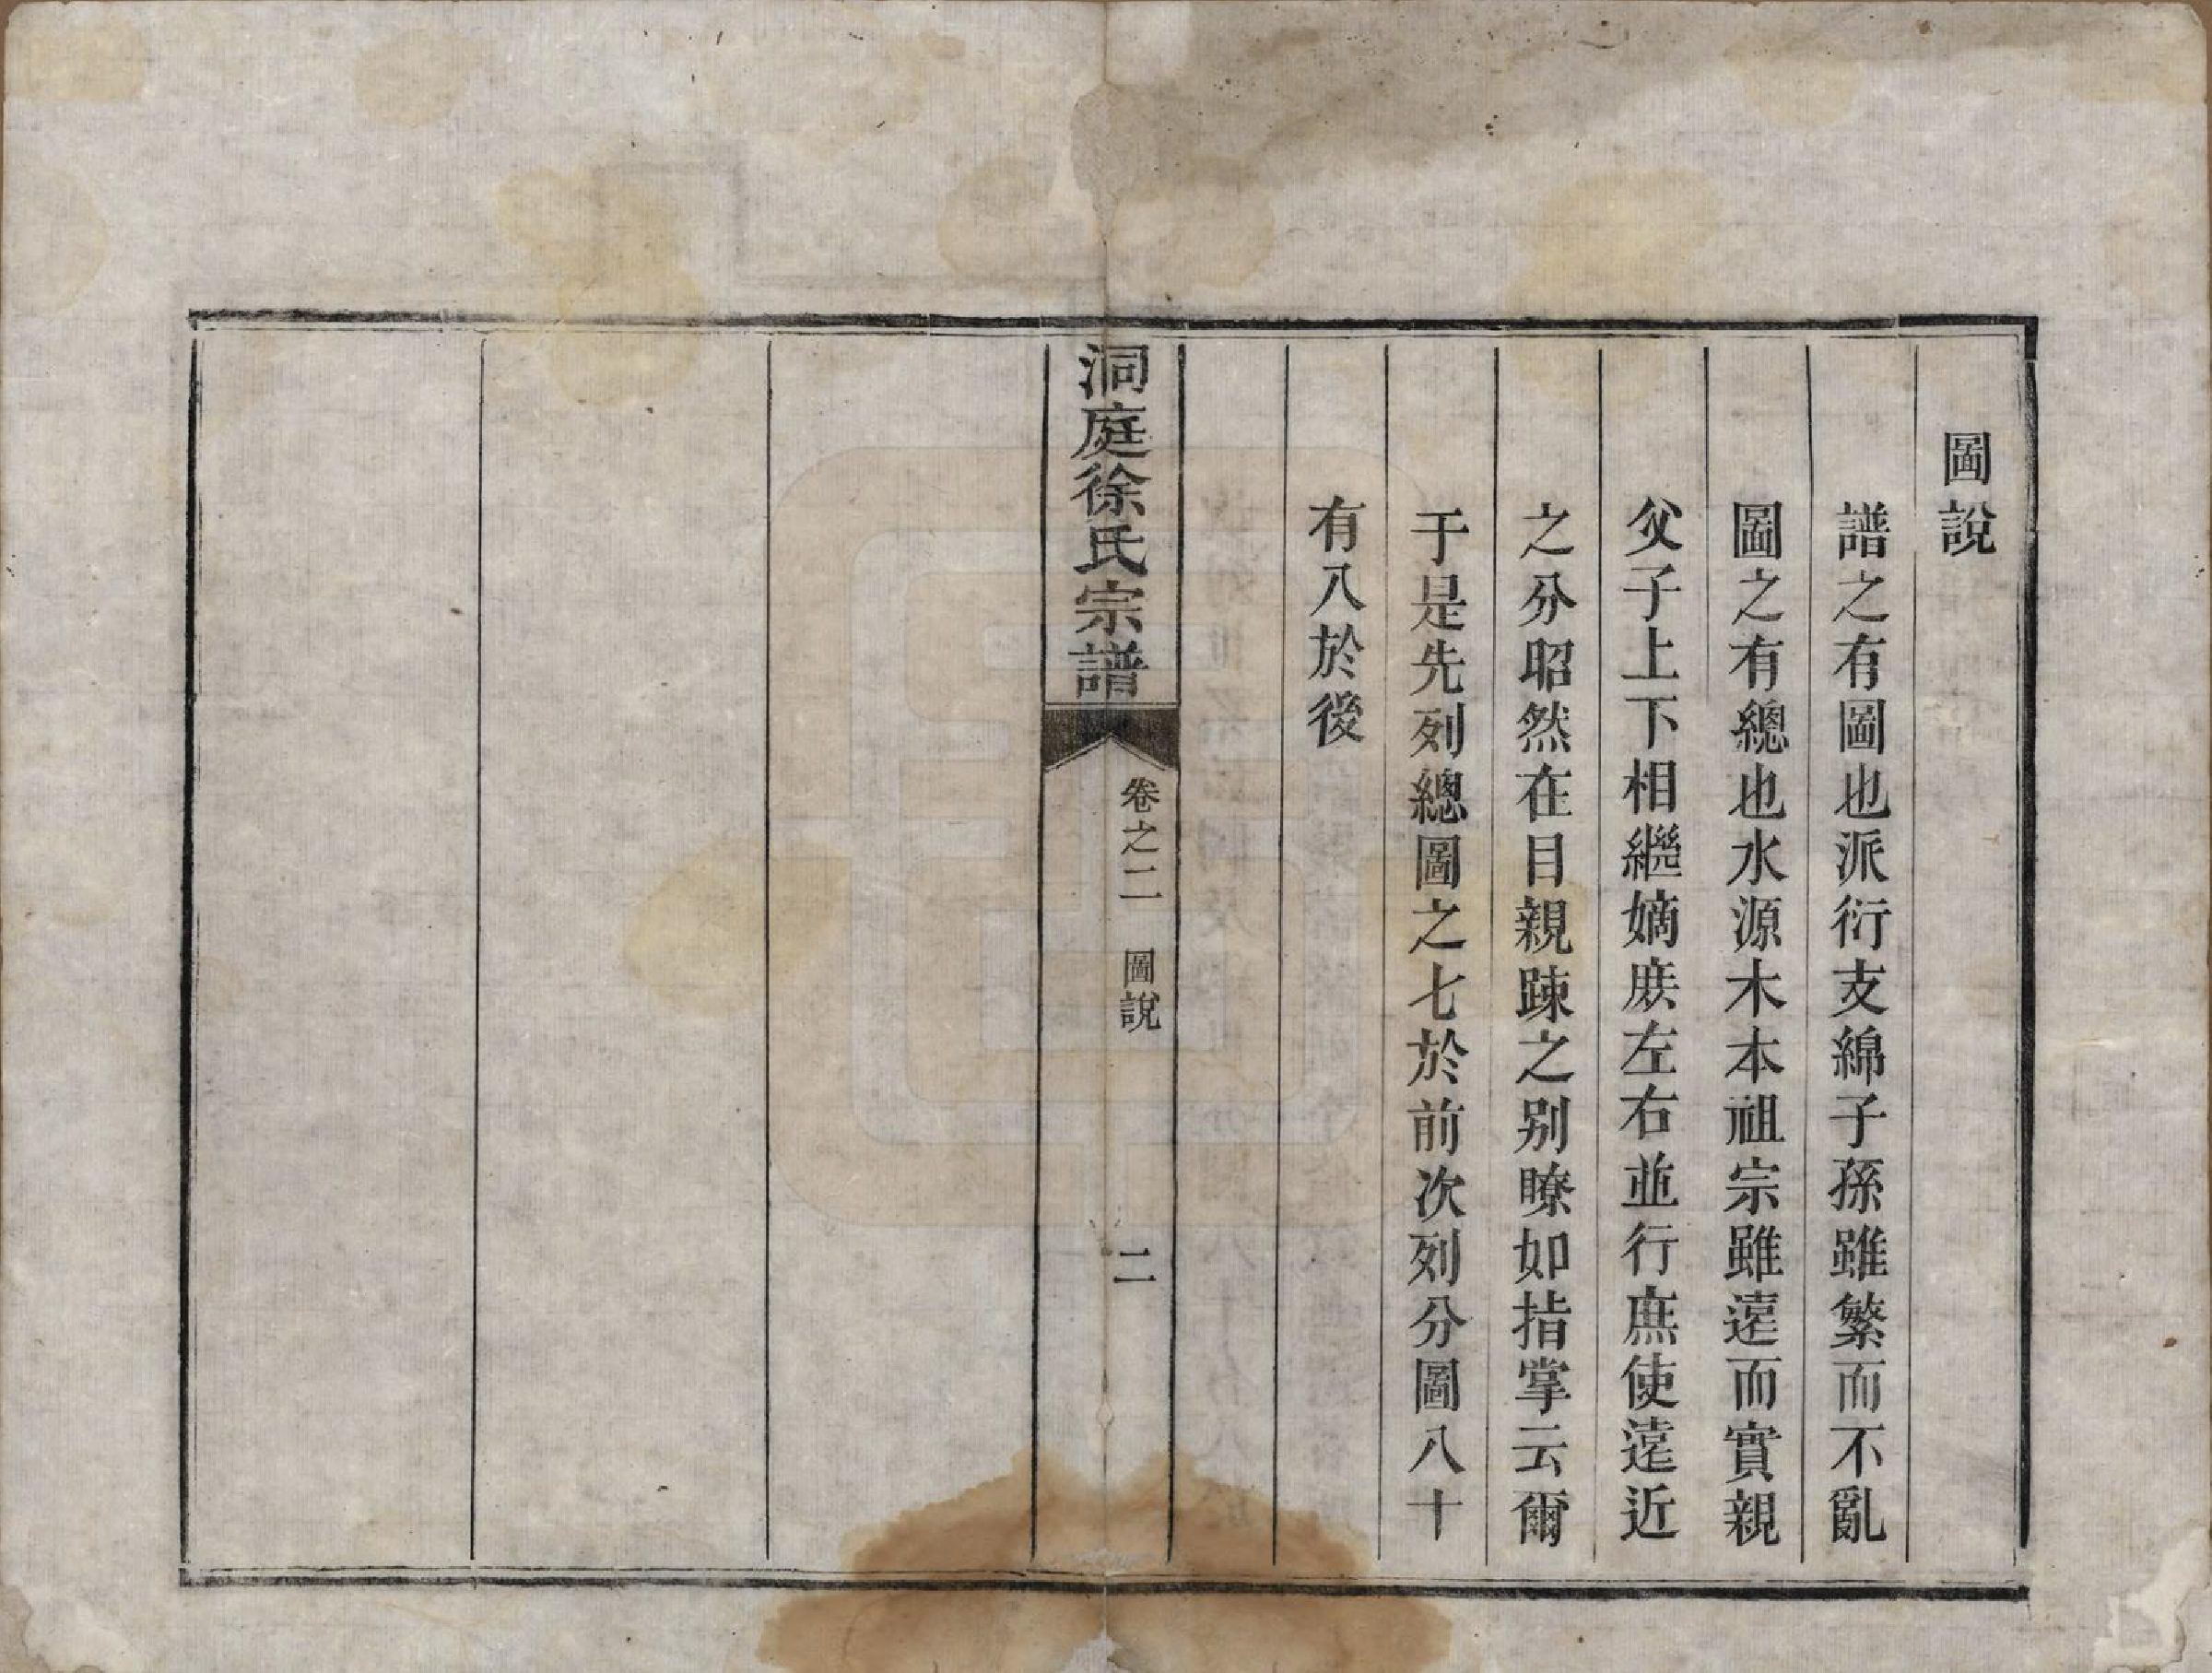 圖說
譜之有圖也派衍支綿子孫雖繁而不亂
圖之有總也水源木本祖宗雖遠而實親
父子上下相繼嫡庻左右並行庶使遠近
之分昭然在目親踈之别瞭如指掌云爾
于是先列總圖之七於前次列分圖八十
有八於後
洞庭徐氏宗譜
卷之二 圖說
二